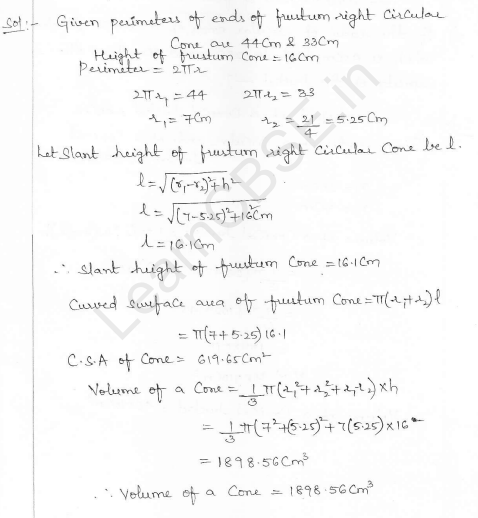 Sol:- Given perimeters of ends of frustum right circular
Cone are 44Cm & 33Cm
Height of frustum Cone = 16Cm
Perimeter = 2πr
2πr₁ = 44 2πr₂ = 33
r₁ = 7Cm r₂ = 21/4 = 5.25Cm
Let Slant height of frustum right Circular Cone be l.
l = √(r₁-r₂)²+h²
l = √(7-5.25)²+16² Cm
l = 16.1Cm
∴ Slant height of frustum Cone = 16.1Cm
Curved Surface area of frustum Cone = π(r₁+r₂)l
= π(7+5.25)16.1
C.S.A of Cone = 619.65Cm²
Volume of a Cone = 1/3 π(r₁²+r₂²+r₁r₂)×h
= 1/3 π(7²+(5.25)²+7(5.25)×16
= 1898.56Cm³
∴ Volume of a Cone = 1898.56Cm³
LearnCBSE.in